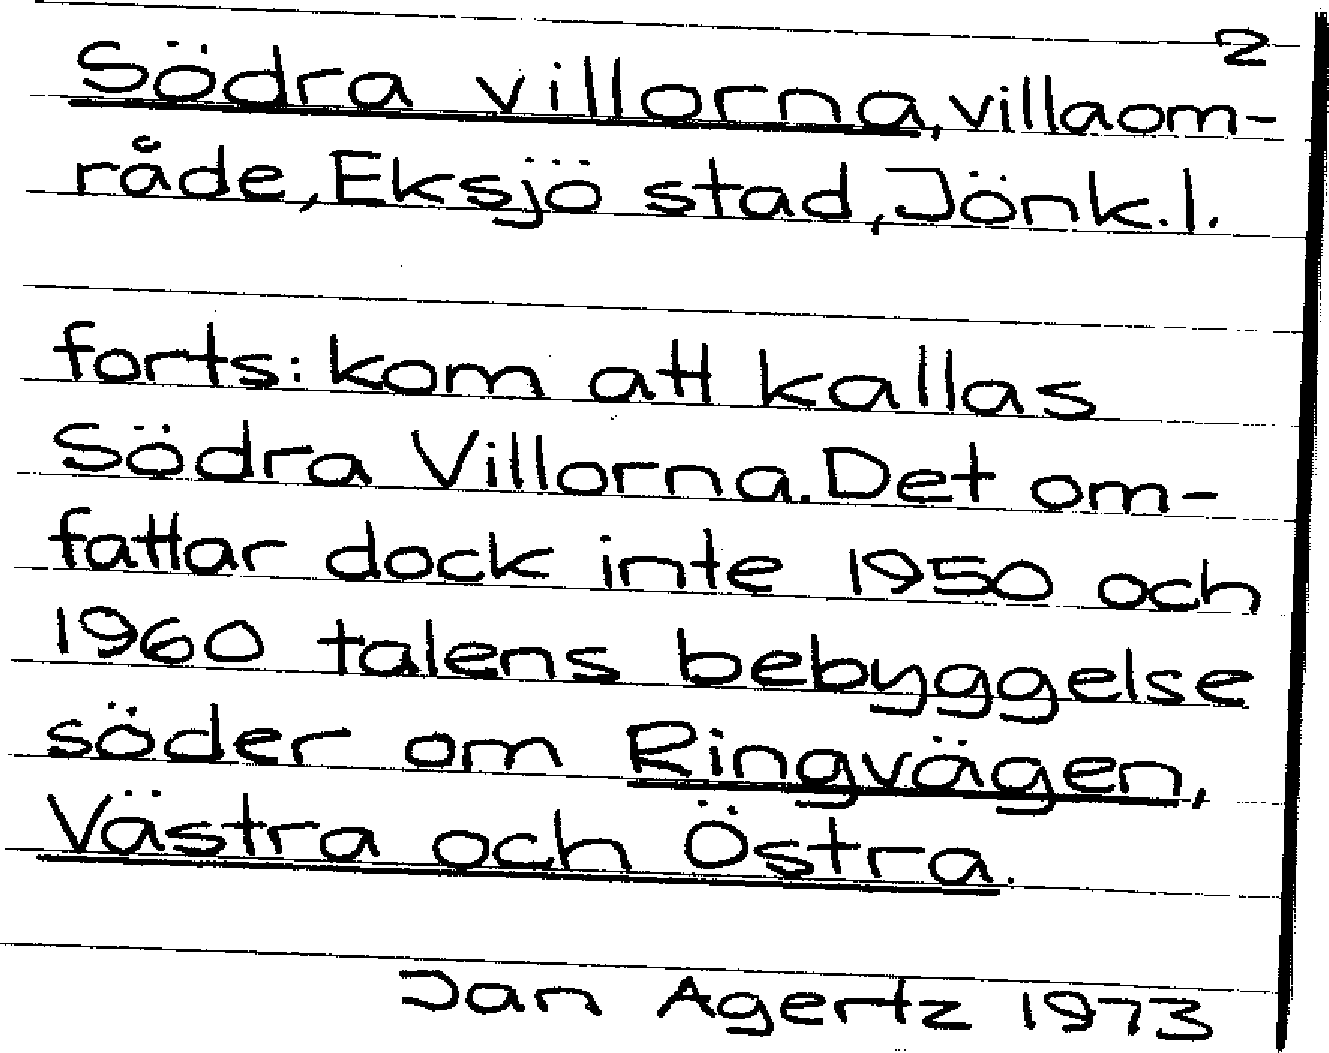 2
Södra villorna, villaom-
råde, Eksjö stad, Jönk.l.
forts: kom att kallas
Södra Villorna. Det om-
fattar dock inte 1950 och
1960 talens bebyggelse
söder om Ringvägen,
Västra och Östra.
Jan Agertz 1973